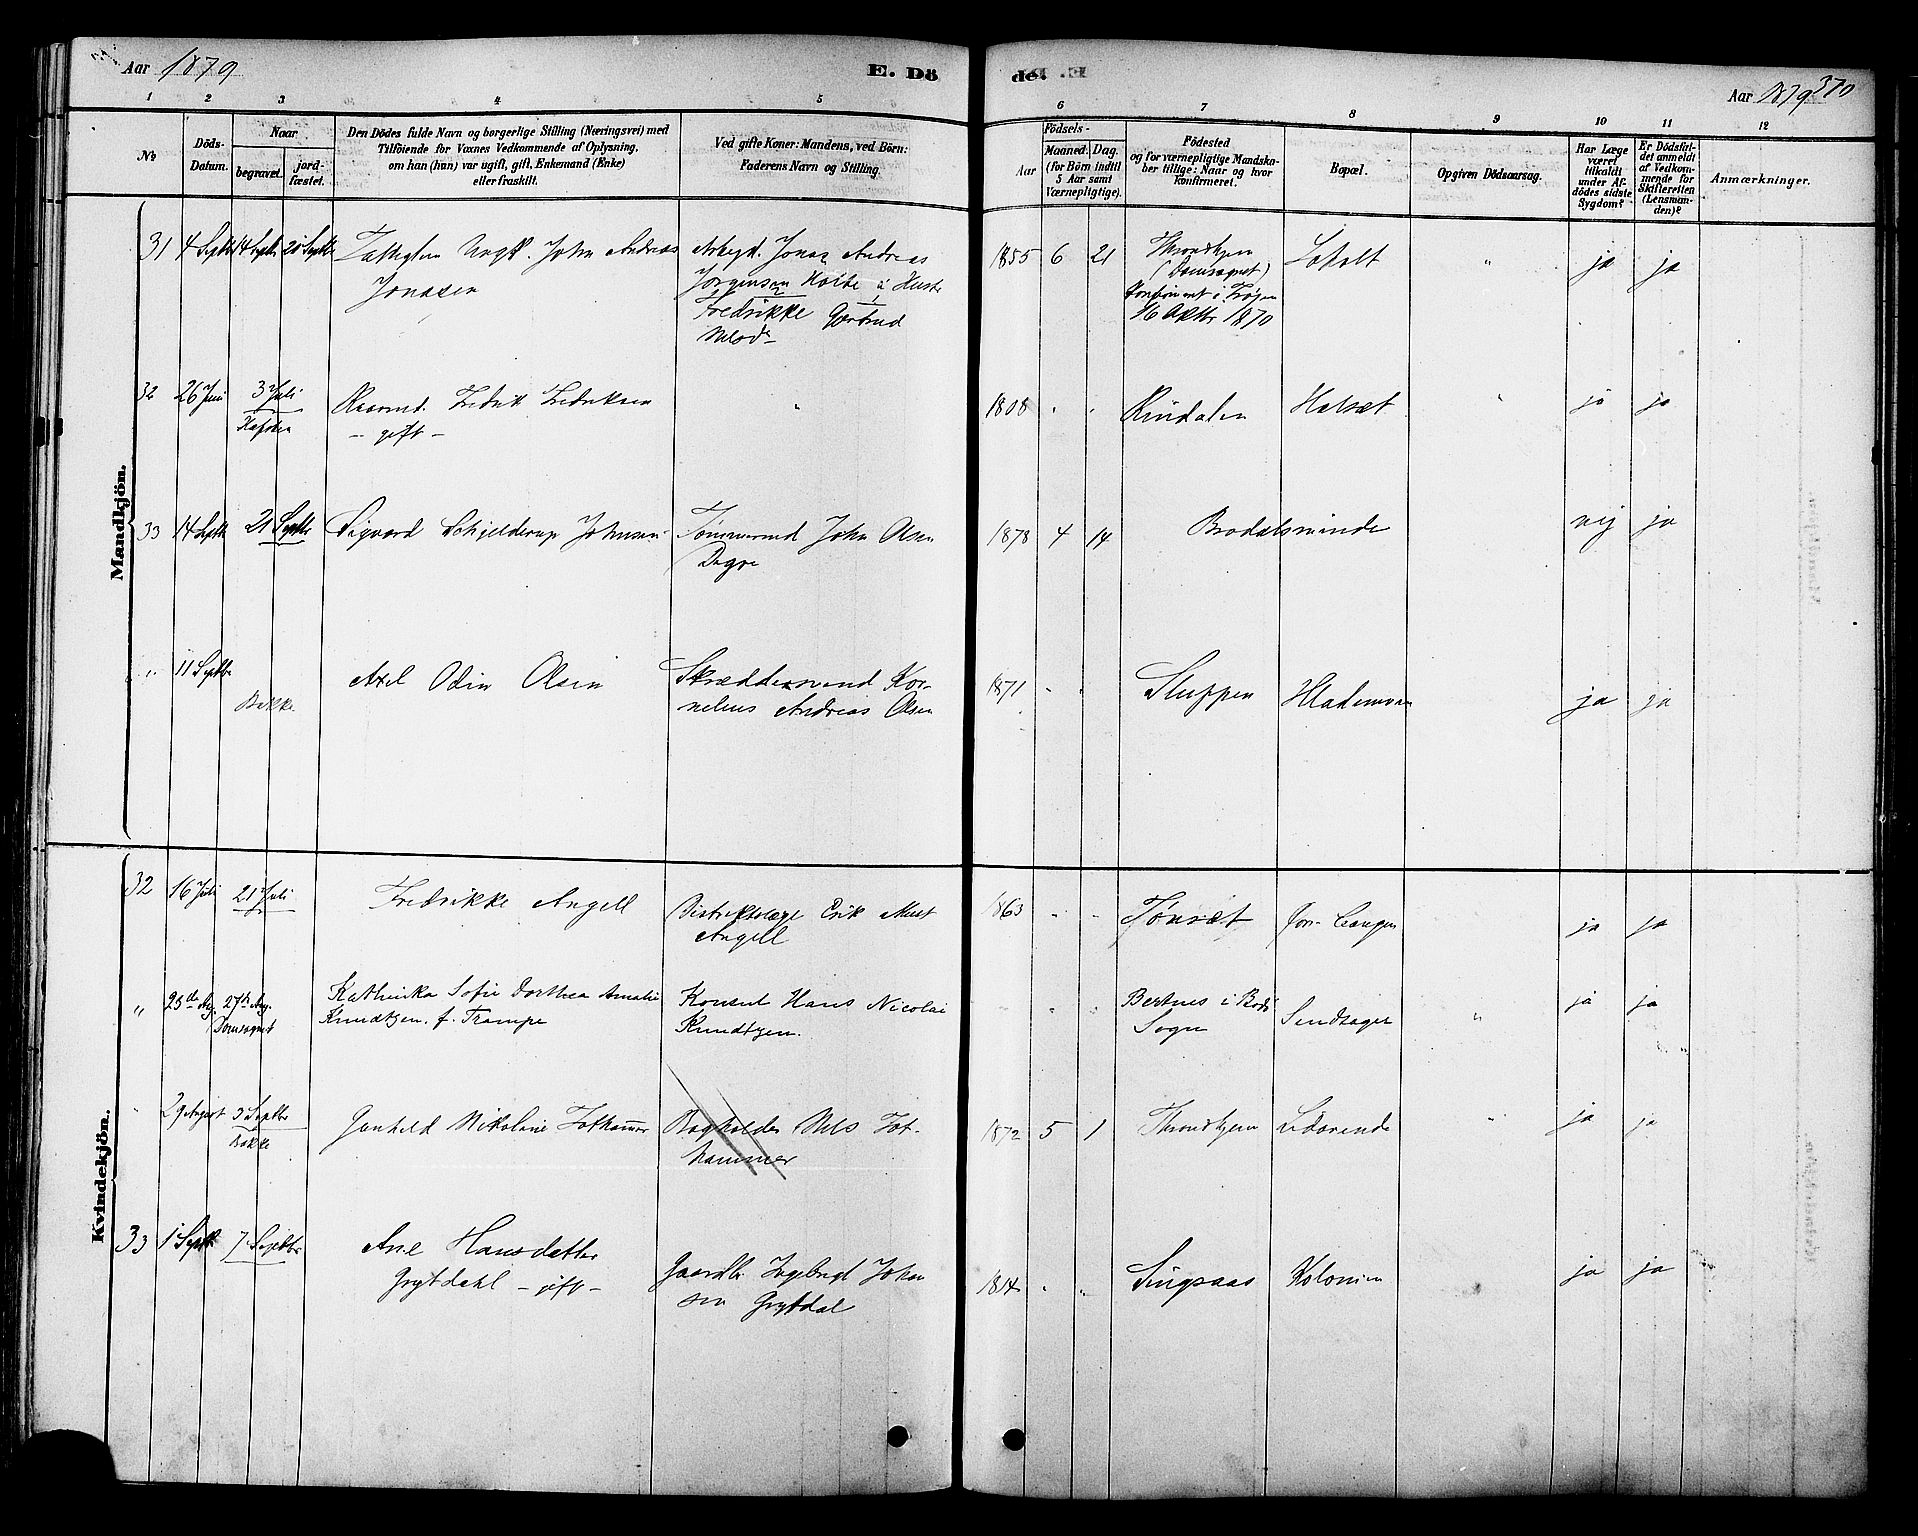 Aar 1879
E. Dö
de.
Aar 1879
370
1 2 3 4 5 6 7 8 9 10 11 12
No
Döds-
Datum.
Naar
begravet.
jord-
fæstet.
Den Dödes fulde Navn og borgerlige Stilling (Næringsvei) med
Tilföiende for Voxnes Vedkommende af Oplysning,
om han (hun) var ugift, gift, Enkemand (Enke)
eller fraskilt.
Ved gifte Koner: Mandens, ved Börn:
Faderens Navn og Stilling.
Födsels-
Aar
Maaned.
Dag.
(for Börn indtil
5 Aar samt
Værnepligtige).
Födested
og for værnepligtige Mandska-
ber tillige: Naar og hvor
konfirmeret.
Bopæl.
Opgiven Dödsaarsag.
Har Læge
været
tilkaldt
under Af-
dödes sidste
Sygdom?
Er Dödsfal-
det anmeldt
af Vedkom-
mende for
Skifteretten
(Lensman-
den)?
Anmærkninger.
Mandkjön.
31 4 Septb 14 Septb 20 Septbr Ungk. John Andreas
Jonasen
Arbejd. Jonas Andreas
Jørgensen Kolbe
Fredrikke Gjertrud
1855 6 21 Throndhjem
(Domsognet)
16 Oktbr 1870
ja ja
32 26 Juni 3 Juli Fredrik Fredriksen
- gift -
1808 " " Rindalen Halset " ja ja
33 14 Septb 21 Septbr Sigvard Schjelderup Johnsen
Tømmermd John Olsen
1878 4 14 Brodalsminde nej ja
" 11 Septbr Bakke Axel Odin Olsen
Skræddersvend Kor-
nelius Andreas Olsen
1871 " " Sluppen Hlademoen ja ja
Kvindekjön.
32 16 Juli 21 Juli Fredrikke Angell
Distriktslæge Erik Must
Angell
1863 " " Tønset ja ja
" 23de Aug. 27de Aug.
Domsognet
Kathinka Sofie Dorthea Amalie
Knudtzen. f. Trampe
Konsul Hans Nicolai
Knudtzen.
" " Bertnes i Bodø
Sogn
" ja ja
" 29 August 3 Septbr
Bakke
Gunhild Nikoline Fothammer
Bagholder Nils Fot-
hammer
1872 5 1 Throndhjem " ja ja
33 1 Septb 7 Septbr Ane Hansdatter
Grytdahl - gift -
Gaardbr Ingebrigt Johan
sen Grytdal
1814 " " Singsaas Kolonien ja ja